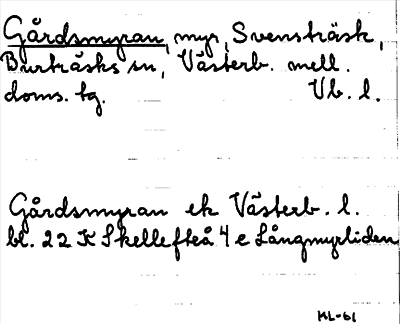 Gårdsmyran, myr, Svensträsk,
Burträsks sn, Västerb. mell.
doms. tg. Vb. l.
Gårdsmyran ek Västerb. l.
bl. 22 K Skellefteå 4 e Långmyrliden
KL-61